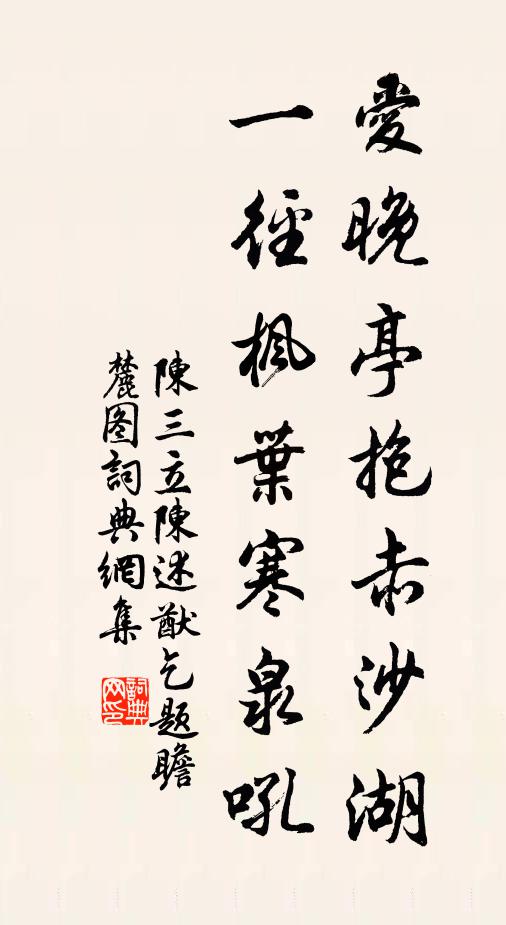 愛晚亭抱赤沙湖
一徑楓葉寒泉吼
陳三立陳述猷乞題瞻
麓图詞典網集
詞典网印